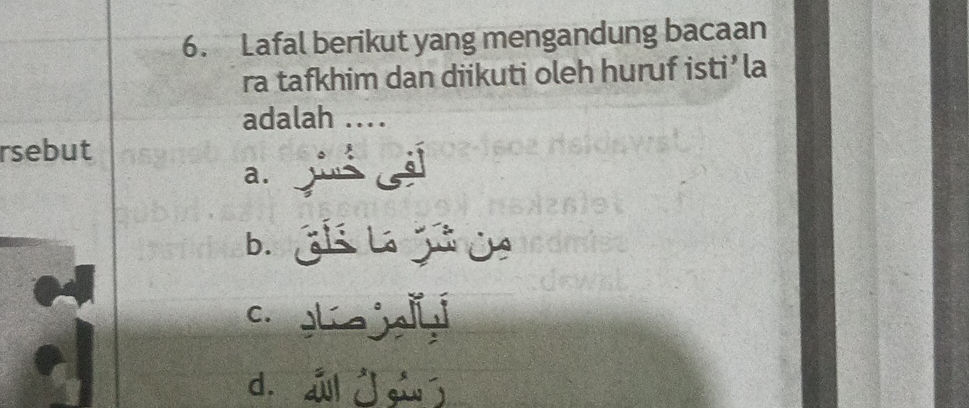 6. Lafal berikut yang mengandung bacaan
ra tafkhim dan diikuti oleh huruf isti'la
adalah ....
rsebut
a. لَفِى خُسْرٍ
b. مِن شَرِّ مَا خَلَقَ
c. لَبِالْمِرْصَادِ
d. رَسُولُ الله